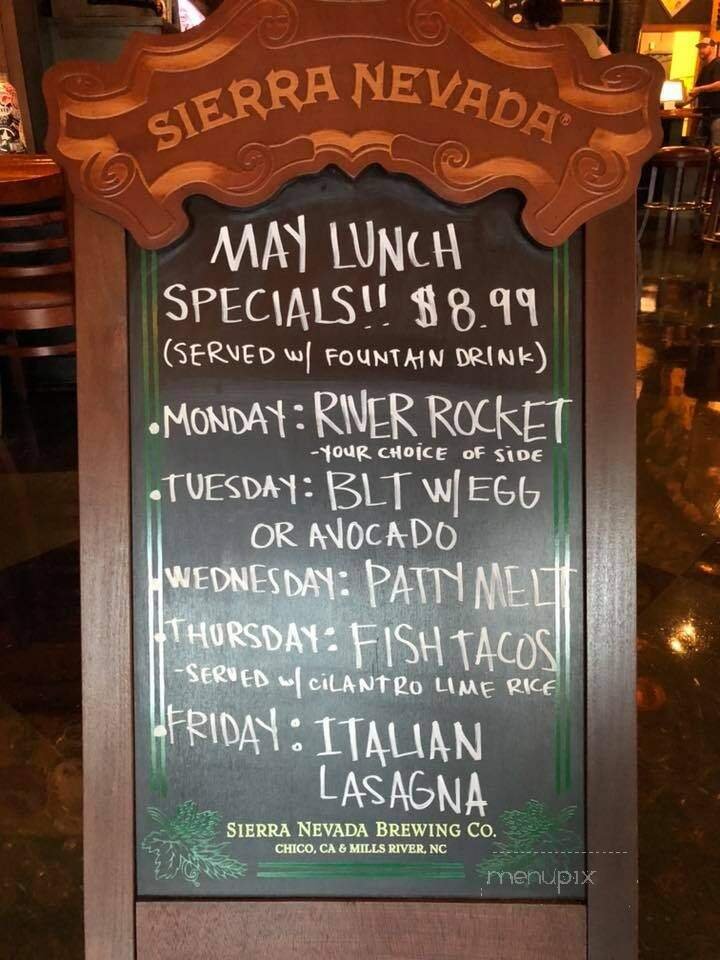 SIERRA NEVADA®
MAY LUNCH
SPECIALS!! $8.99
(SERVED W/ FOUNTAIN DRINK)
•MONDAY: RIVER ROCKET
-YOUR CHOICE OF SIDE
•TUESDAY: BLT W/EGG
OR AVOCADO
•WEDNESDAY: PATTY MELT
•THURSDAY: FISH TACOS
-SERVED W/ CILANTRO LIME RICE
•FRIDAY: ITALIAN
LASAGNA
SIERRA NEVADA BREWING CO.
CHICO, CA & MILLS RIVER, NC
menupix